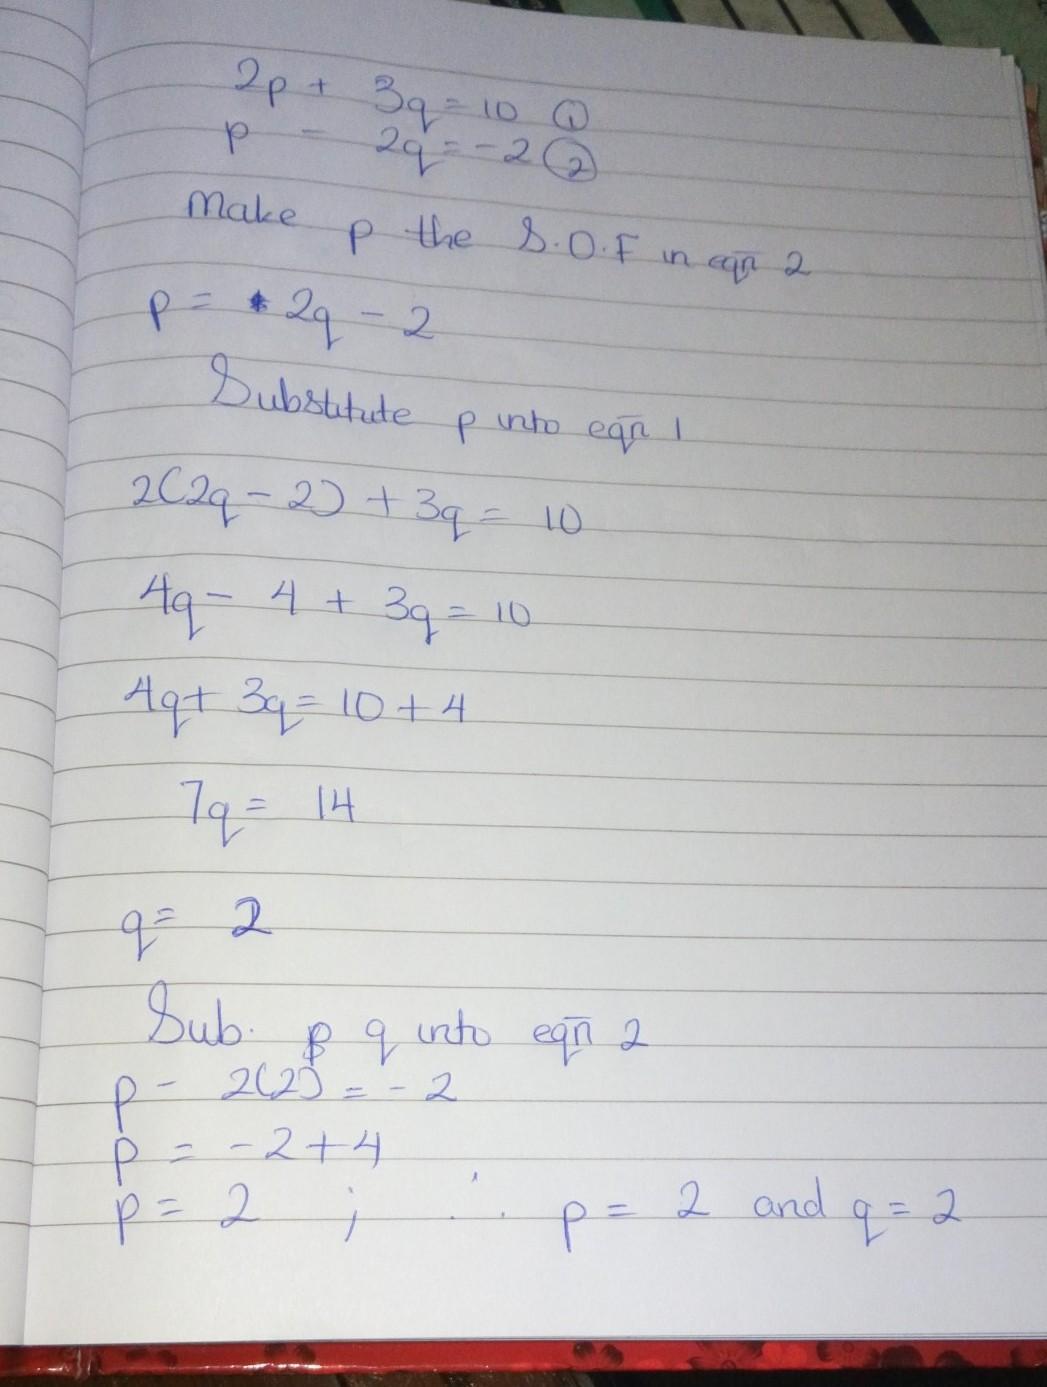 2p + 3q = 10 ①
p - 2q = -2 ②
Make p the S.O.F in eqn̄ 2
p = 2q - 2
Substitute p into eqn̄ 1
2(2q - 2) + 3q = 10
4q - 4 + 3q = 10
4q + 3q = 10 + 4
7q = 14
q = 2
Sub. q into eqn̄ 2
p - 2(2) = -2
p = -2 + 4
p = 2 ; ∴ p = 2 and q = 2